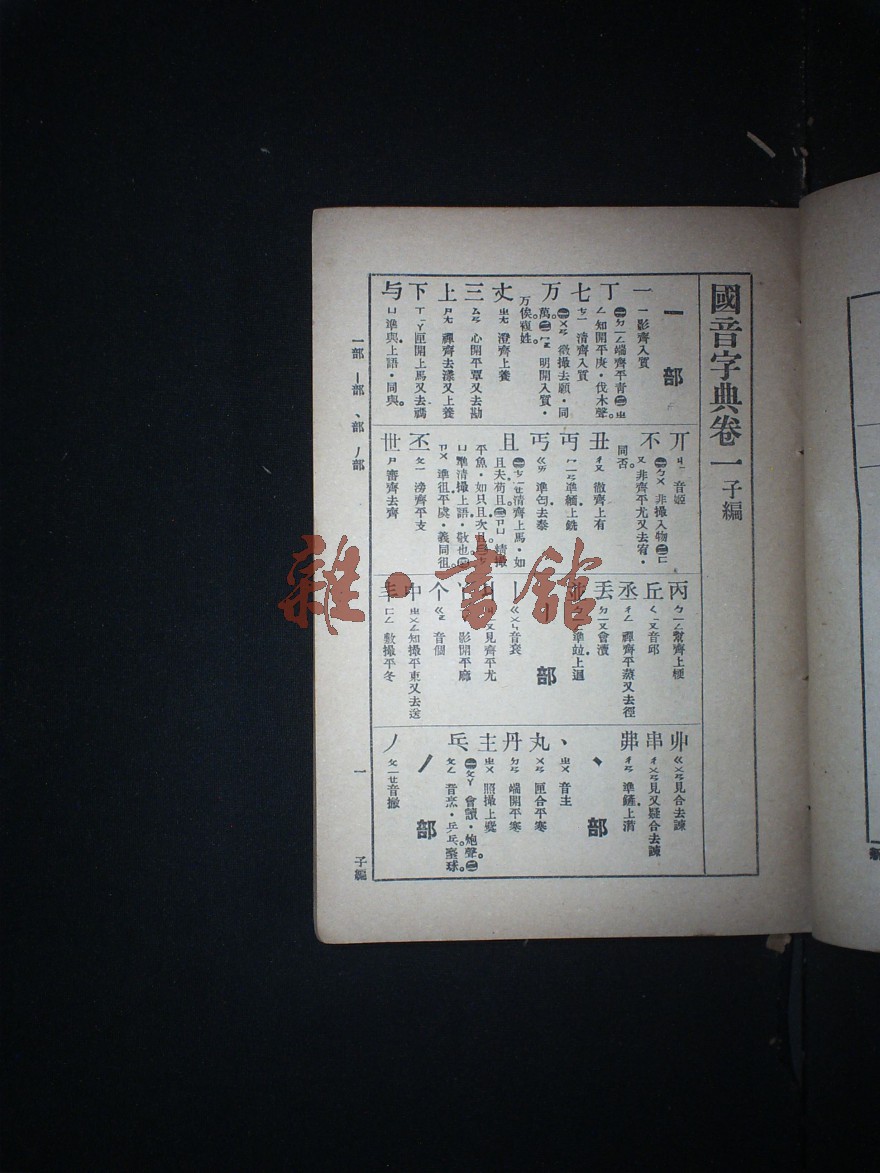 國音字典卷一 子編
一部
一 ㄧ 影齊入質
丁 ㊀ㄉㄧㄥ端齊平青㊁ㄓㄥ知開平庚·伐木聲。
七 ㄘㄧ 清齊入質
万 ㊀ㄨㄢ 微撮去願·同萬。㊁ㄇㄛ 明開入質·万俟複姓。
丈 ㄓㄤ 澄齊上養
三 ㄙㄢ 心開平覃又去勘
上 ㄕㄤ 禪齊去漾又上養
下 ㄒㄧㄚ匣開上馬又去禡
与 ㄩ 準與上語·同與。
丌 ㄐㄧ 音姬
不 ㊀ㄅㄨ 非撮入物㊁ㄈㄡ非齊平尤又去宥·同否。
丑 ㄔㄡ 徹齊上有
丏 ㄇㄧㄢ準緬上銑
丐 ㄍㄞ 準匄去泰
且 ㊀ㄘㄧㄝ清齊上馬·如且夫苟且㊁ㄗㄩ 精撮平魚·如只且次且
丕 ㄆㄧ 滂齊平支
世 ㄕ 審齊去齊
丙 ㄅㄧㄥ幫齊上梗
丘 ㄑㄧㄡ音邱
丞 ㄔㄥ 禪齊平蒸又去徑
丟 ㄉㄧㄡ會瀆
並 準竝上迥
丨部
丨 ㄍㄨㄣ音袞
見齊平尤
影開平麻
个 ㄍㄜ 音個
中 ㄓㄨㄥ知撮平東又去送
丰 ㄈㄥ 敷撮平冬
丱 ㄍㄨㄢ見合去諫
串 ㄔㄨㄢ見又疑合去諫
丳 ㄔㄢ 準鏟上潸
丶部
丶 ㄓㄨ 音主
丸 ㄨㄢ 匣合平寒
丹 ㄉㄢ 端開平寒
主 ㄓㄨ 照撮上麌
乓 ㊀ㄆㄚ 會讀·炮聲。㊁ㄆㄥ
丿部
丿 ㄆㄧㄝ音撇
一部 丨部 丶部 丿部
一
子編
雜·書館